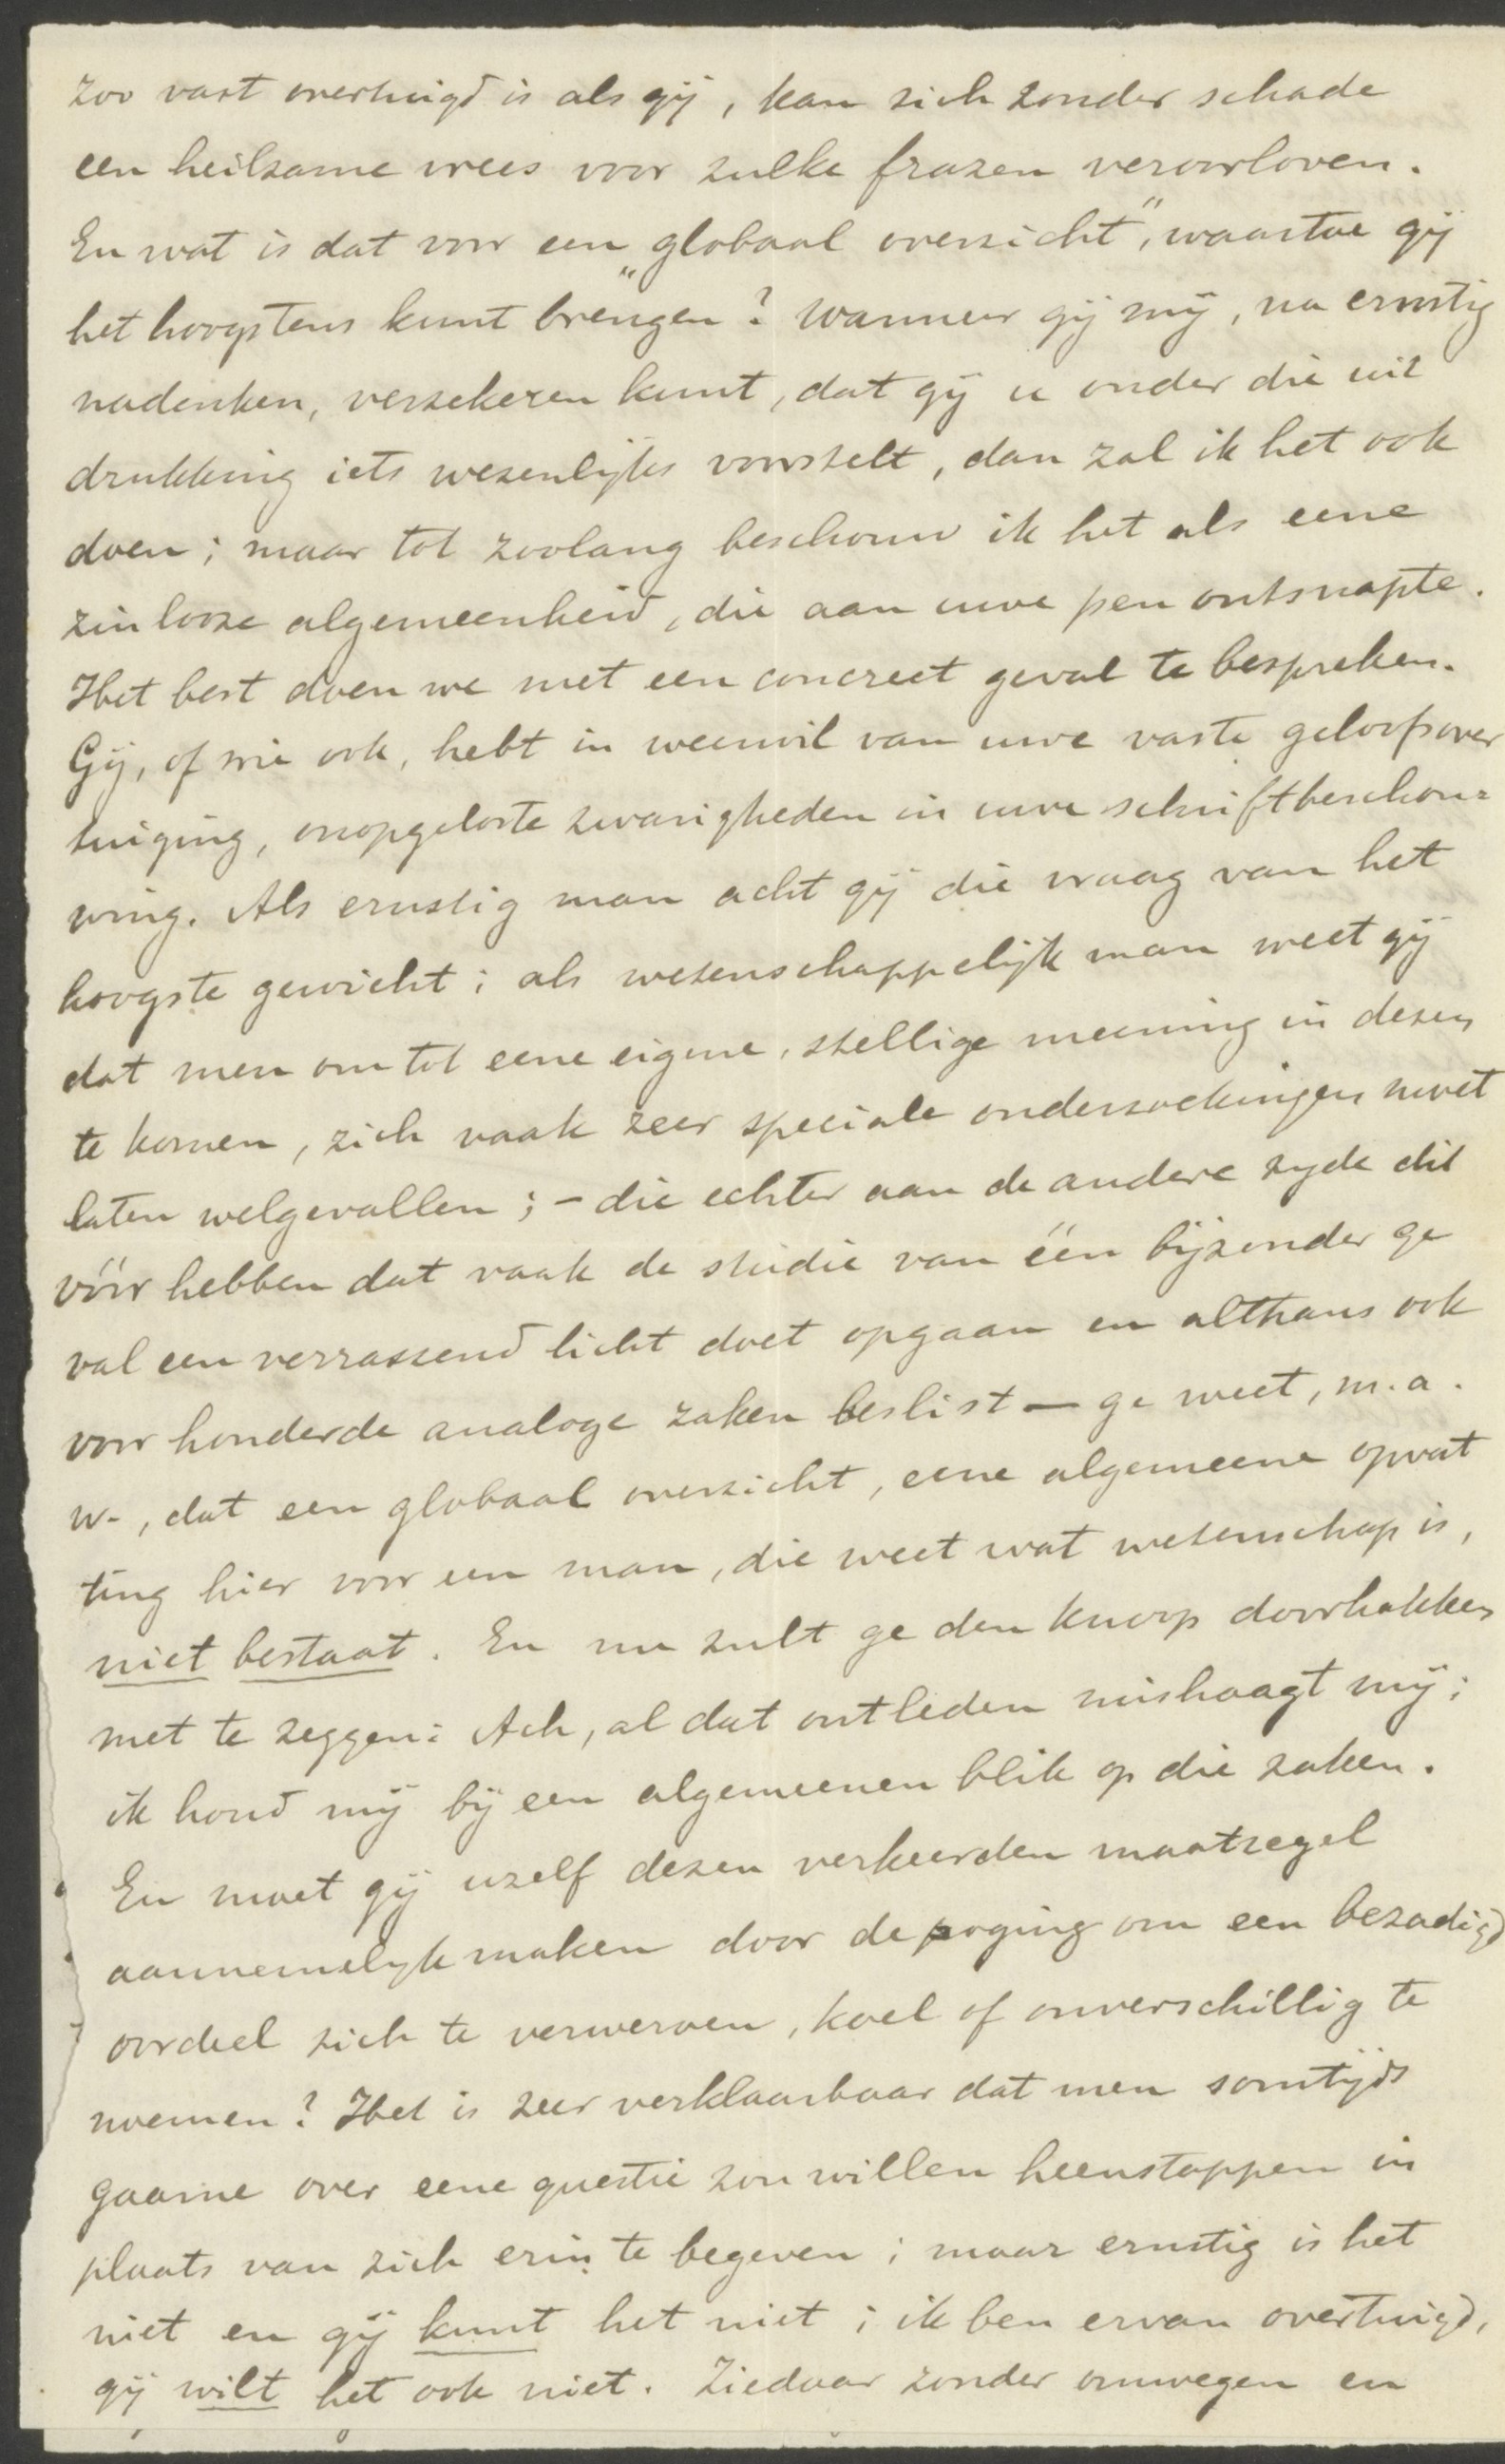 zoo vast overtuigd is als gij, kan zich zonder schade
een heilzame vrees voor zulke frazen veroorloven.
En wat is dat voor een „globaal overzicht”, waartoe gij
het hoogstens kunt brengen? Wanneer gij mij, na ernstig
nadenken, verzekeren kunt, dat gij u onder die uit
drukking iets wezenlijks voorstelt, dan zal ik het ook
doen; maar tot zoolang beschouw ik het als eene
zinlooze algemeenheid, die aan uwe pen ontsnapte.
Het best doen we met een concreet geval te bespreken.
Gij, of wie ook, hebt in weerwil van uwe vaste geloofsover
tuiging, onopgeloste zwarigheden in uwe schriftbeschou=
wing. Als ernstig man acht gij die vraag van het
hoogste gewicht; als wetenschappelijk man weet gij
dat men om tot eene eigene, stellige meening in dezen
te komen, zich vaak zeer speciale onderzoekingen moet
laten welgevallen; – die echter aan de andere zyde dit
vóór hebben dat vaak de studie van één bijzonder ge
val een verrassend licht doet opgaan en althans ook
voor honderde analoge zaken beslist — ge weet, m. a.
w., dat een globaal overzicht, eene algemeene opvat
ting hier voor een man, die weet wat wetenschap is,
niet bestaat. En nu zult ge den knoop doorhakken
met te zeggen: Ach, al dat ontleden mishaagt mij;
ik houd mij bij een algemeenen blik op die zaken.
En moet gij uzelf dezen verkeerden maatregel
aannemelyk maken door de poging om een bezadigd
oordeel zich te verwerven, koel of onverschillig te
noemen? Het is zeer verklaarbaar dat men somtijds
gaarne over eene questie zou willen heenstappen in
plaats van zich erin te begeven; maar ernstig is het
niet en gij kunt het niet; ik ben ervan overtuigd,
gij wilt het ook niet. Ziedaar zonder omwegen en